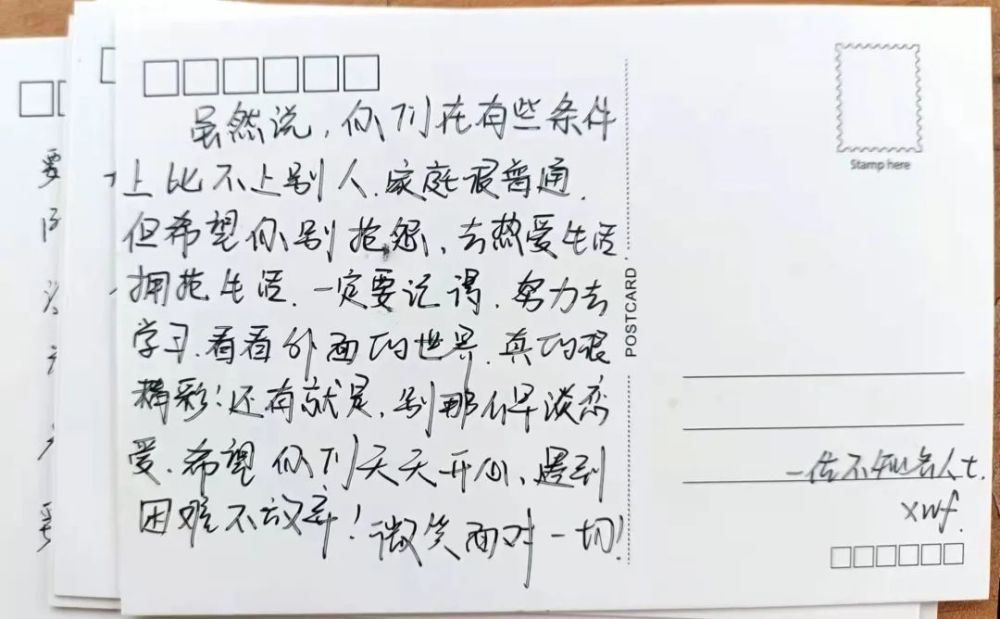 虽然说，你们在有些条件
上比不上别人，家庭很普通，
但希望你别抱怨，去热爱生活
拥抱生活，一定要记得，努力去
学习，看看外面的世界，真的很
精彩！还有就是，别那么早谈恋
爱，希望你们天天开心，遇到
困难不放弃！微笑面对一切！
POSTCARD
Stamp here
一位不知名人士
xwf.
要